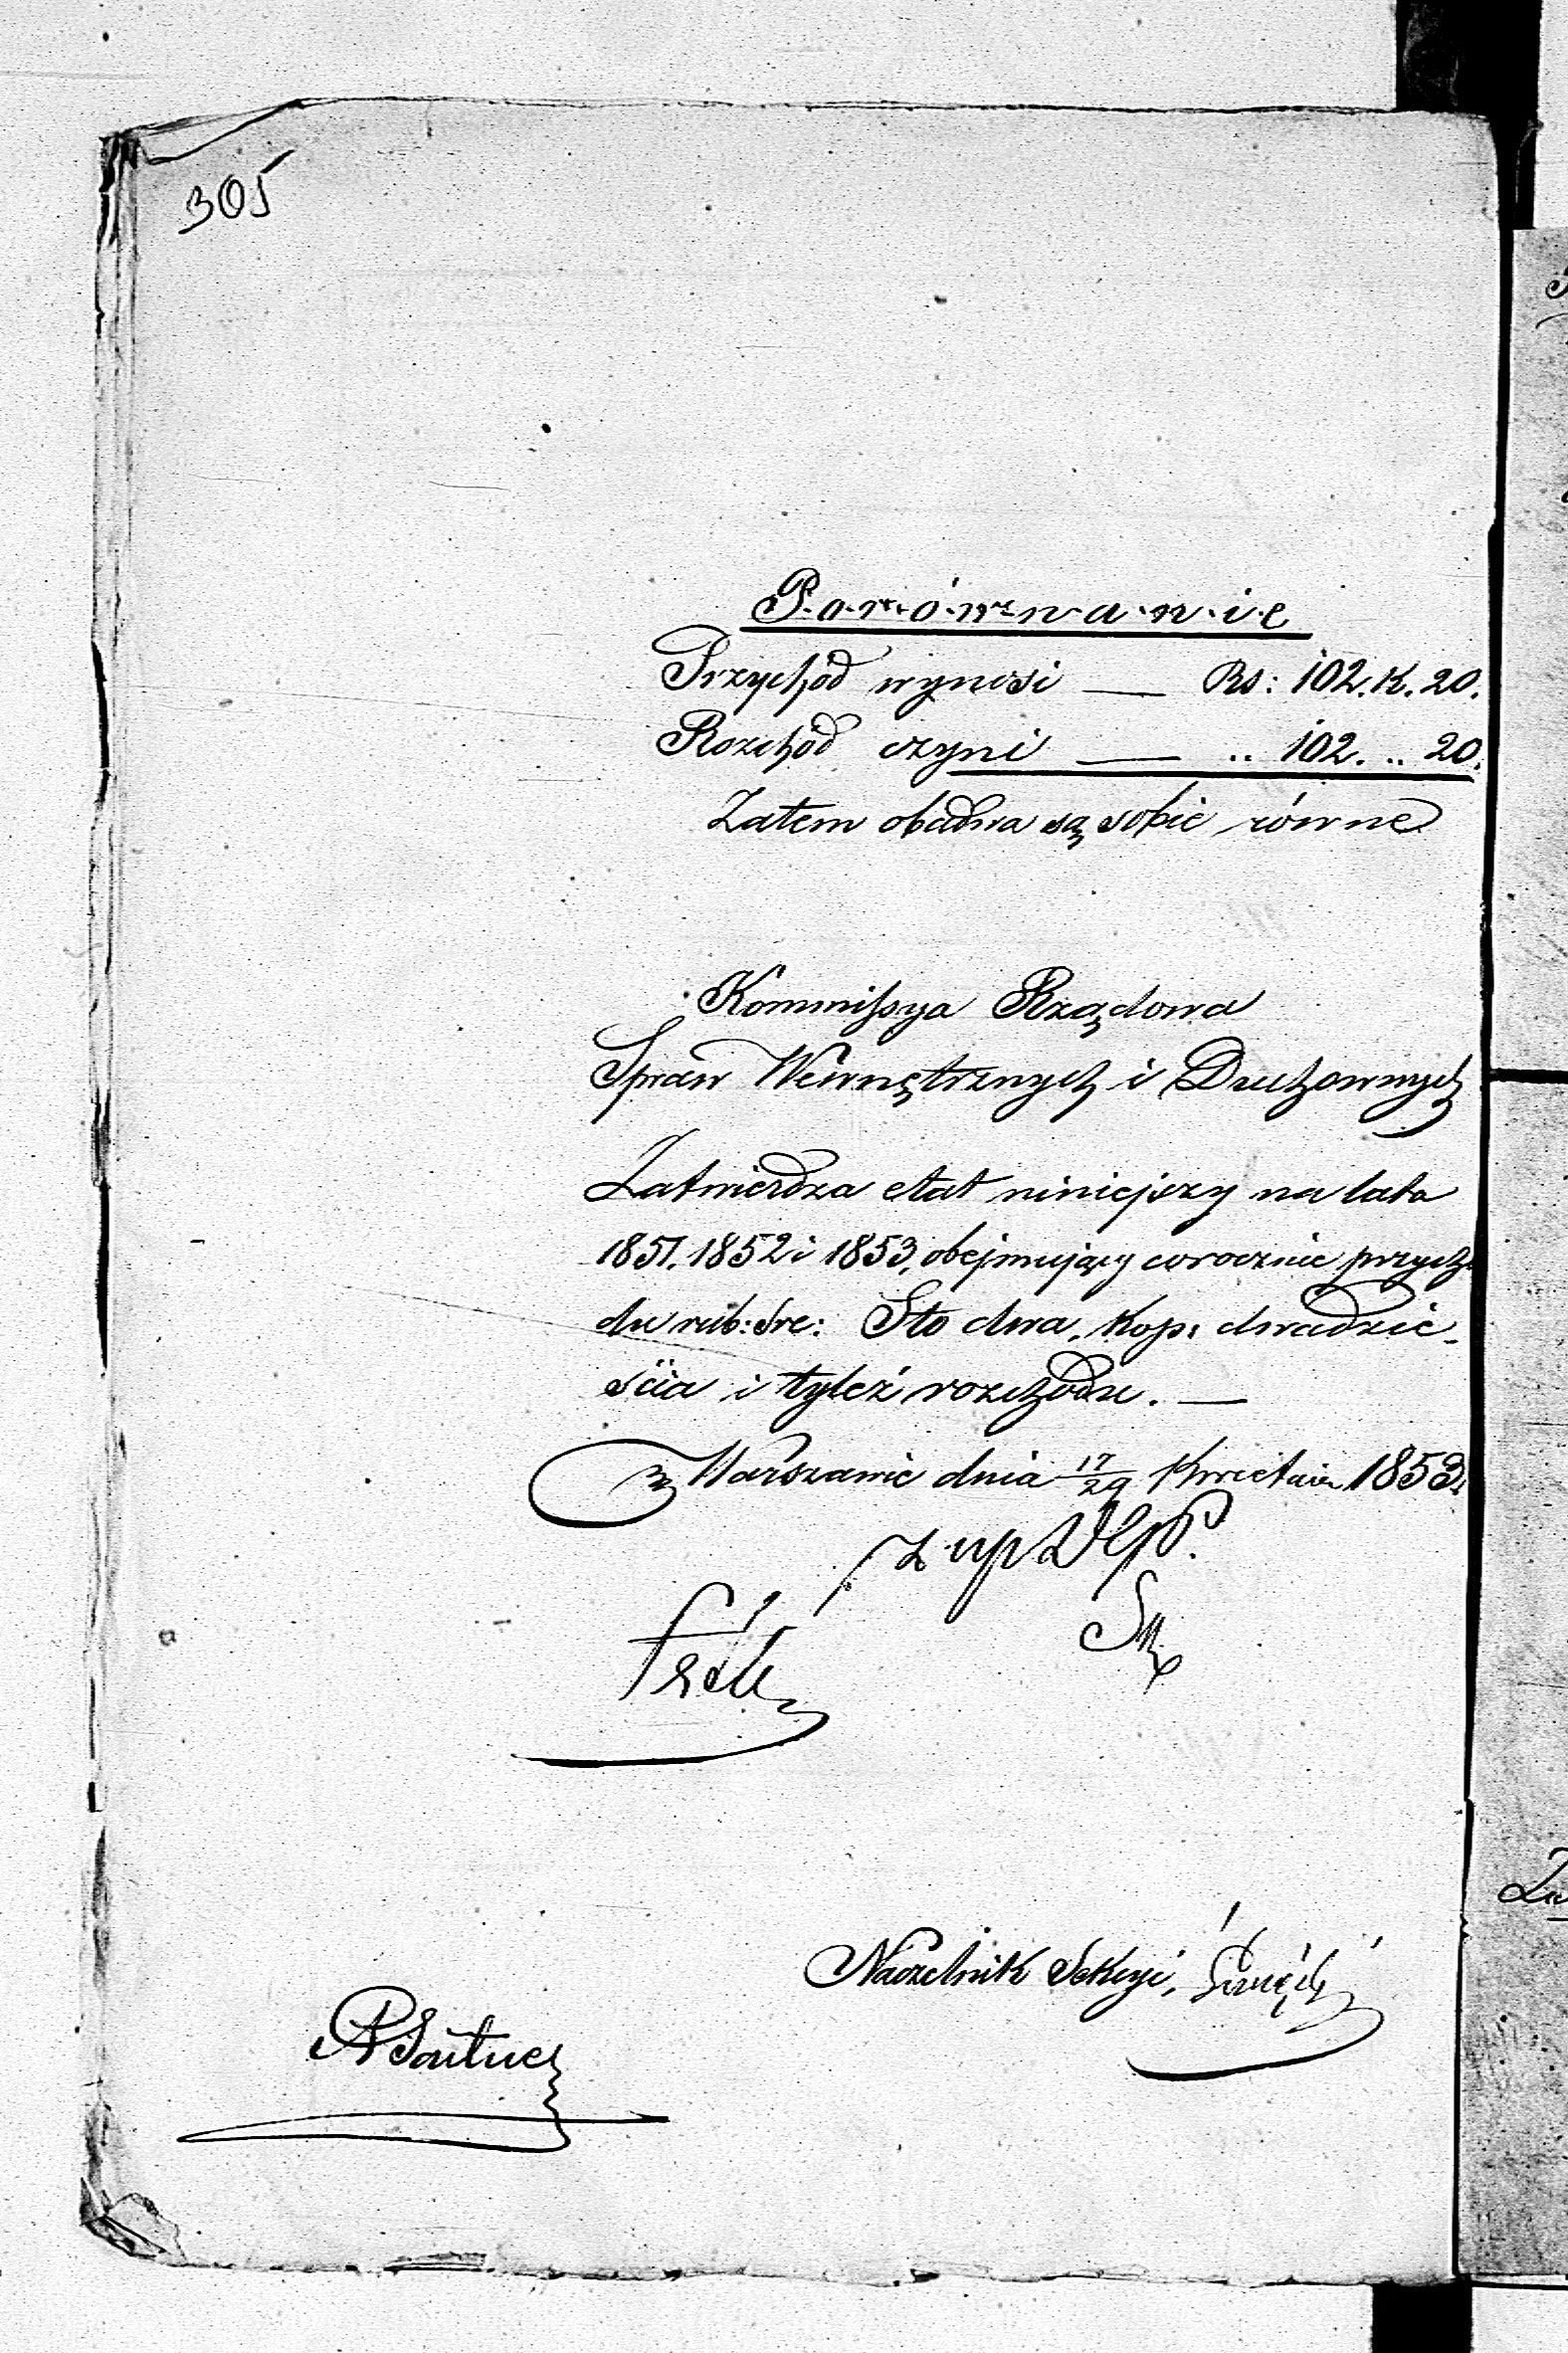 305
P-o-r-ó-w-n-a-n-i-e
Przychód wynosi — Rs: 102. K. 20.
Rozchód czyni — .. 102. .. 20.
Zatem obadwa są sobie równe
Kommissya Rządowa
Spraw Wewnętrznych i Duchownych
Zatwierdza etat niniejszy na lata
1851. 1852 i 1853, obejmujący corocznie przycho
du rub: sre: Sto dwa, kop: dwadzie-
ścia i tyleż rozchodu. —
w Warszawie dnia 17/29 Kwietnia 1853.
z up
Naczelnik Sekcyi,